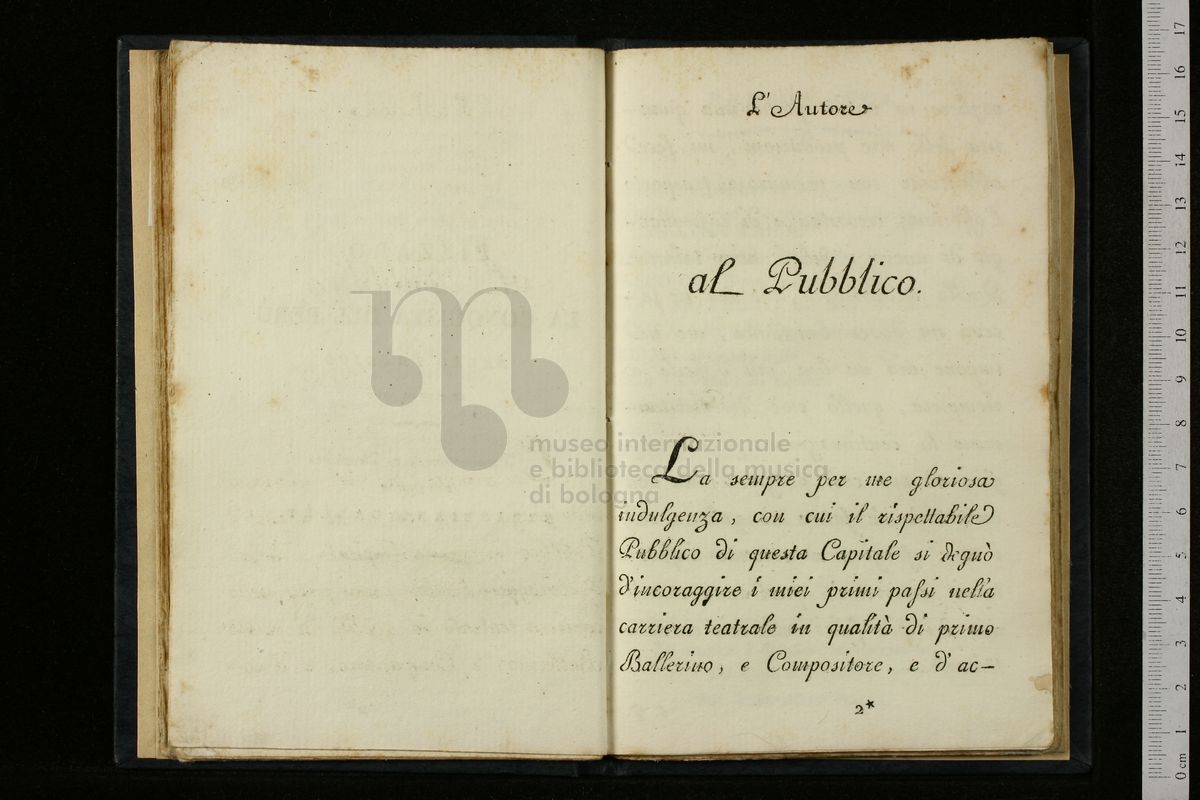 L'Autore
al Pubblico.
La sempre per me gloriosa
indulgenza, con cui il rispettabile
Pubblico di questa Capitale si degnò
d'incoraggire i miei primi paſsi nella
carriera teatrale in qualità di primo
Ballerino, e Compositore, e d'ac-
2*
museo internazionale
e biblioteca della musica
di bologna
0 cm 1 2 3 4 5 6 7 8 9 10 11 12 13 14 15 16 17